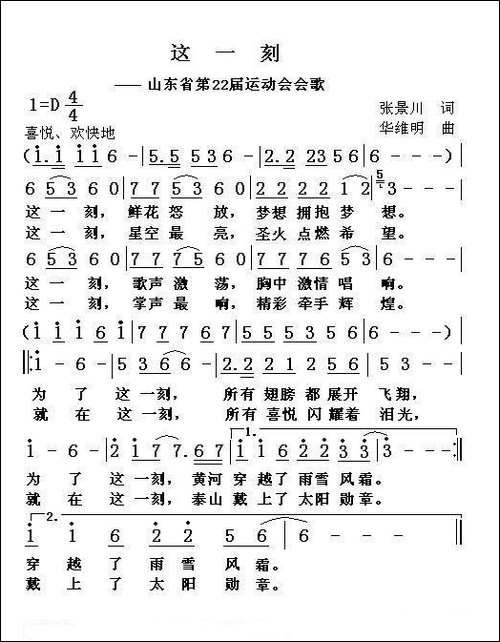 这 一 刻
—— 山东省第22届运动会会歌
1=D 4/4
张景川 词
喜悦、欢快地
华维明 曲
(i.i i i 6 - | 5.5 5 3 6 - | 2.2 2 3 5 6 | 6 - - -)|
6 5 3 6 0 | 7 7 5 3 6 0 | 2 2 2 2 1 2 | 3 - - - |
这 一 刻， 鲜花 怒 放， 梦想 拥抱 梦 想。
这 一 刻， 星空 最 亮， 圣火 点燃 希 望。
6 5 3 6 0 | 7 7 5 6 6 0 | 2 2 7 6 5 3 | 6 - - - |
这 一 刻， 歌声 激 荡， 胸中 激情 唱 响。
这 一 刻， 掌声 最 响， 精彩 牵手 辉 煌。
(i i i 6 i | 7 7 7 6 7 | 5 5 5 3 5 | 6 - - -)|
‖: i - 6 - | 5 3 6 6 - | 2.2 2 1 2 5 | 6 - - - |
为 了 这 一刻， 所有 翅膀 都 展开 飞翔，
就 在 这 一刻， 所有 喜悦 闪 耀着 泪光，
i - 6 - | 2 i 7 7. 6 7 | 1. i i 6 2 2 3 3 | 3 - - - :‖
为 了 这 一刻， 黄河 穿 越了 雨雪 风霜。
就 在 这 一刻， 泰山 戴 上了 太阳 勋章。
2.
i i 6 2 | 2 2 5 6 | 6 - - - | i - - - ‖
穿 越 了 雨 雪 风 霜。
戴 上 了 太 阳 勋 章。